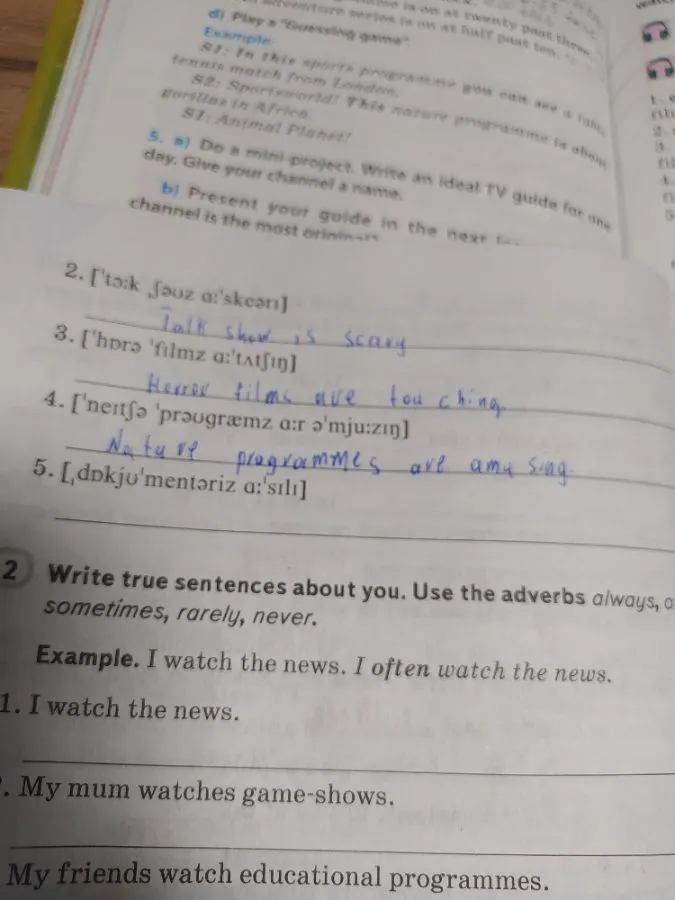 adventure series is on at half past ten.
d) Play a "Guessing game".
Example:
S1: In this sports programme you can see a
tennis match from London.
S2: Sportsworld! This nature programme is about
gorillas in Africa.
S1: Animal Planet!
5. a) Do a mini-project. Write an ideal TV guide for one
day. Give your channel a name.
b) Present your guide in the next
channel is the most
2. [ˈtɔ:k ˌʃəʊz ɑ:ˈskeərɪ]
Talk show is scary
3. [ˈhɒrə ˈfɪlmz ɑ:ˈtʌtʃɪŋ]
Horror films are touching.
4. [ˈneɪtʃə ˈprəʊgræmz ɑ:r əˈmju:zɪŋ]
Nature programmes are amusing.
5. [ˌdɒkjʊˈmentəriz ɑ:ˈsɪlɪ]
2 Write true sentences about you. Use the adverbs always,
sometimes, rarely, never.
Example. I watch the news. I often watch the news.
1. I watch the news.
. My mum watches game-shows.
My friends watch educational programmes.